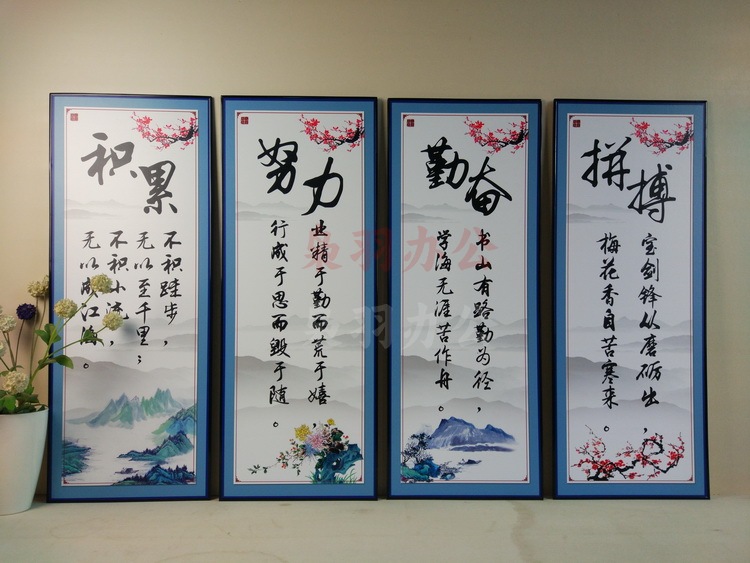 积累
不积跬步，
无以至千里；
不积小流，
无以成江海。
努力
业精于勤而荒于嬉，
行成于思而毁于随。
勤奋
书山有路勤为径，
学海无涯苦作舟。
拼搏
宝剑锋从磨砺出，
梅花香自苦寒来。
羽办公
羽办公